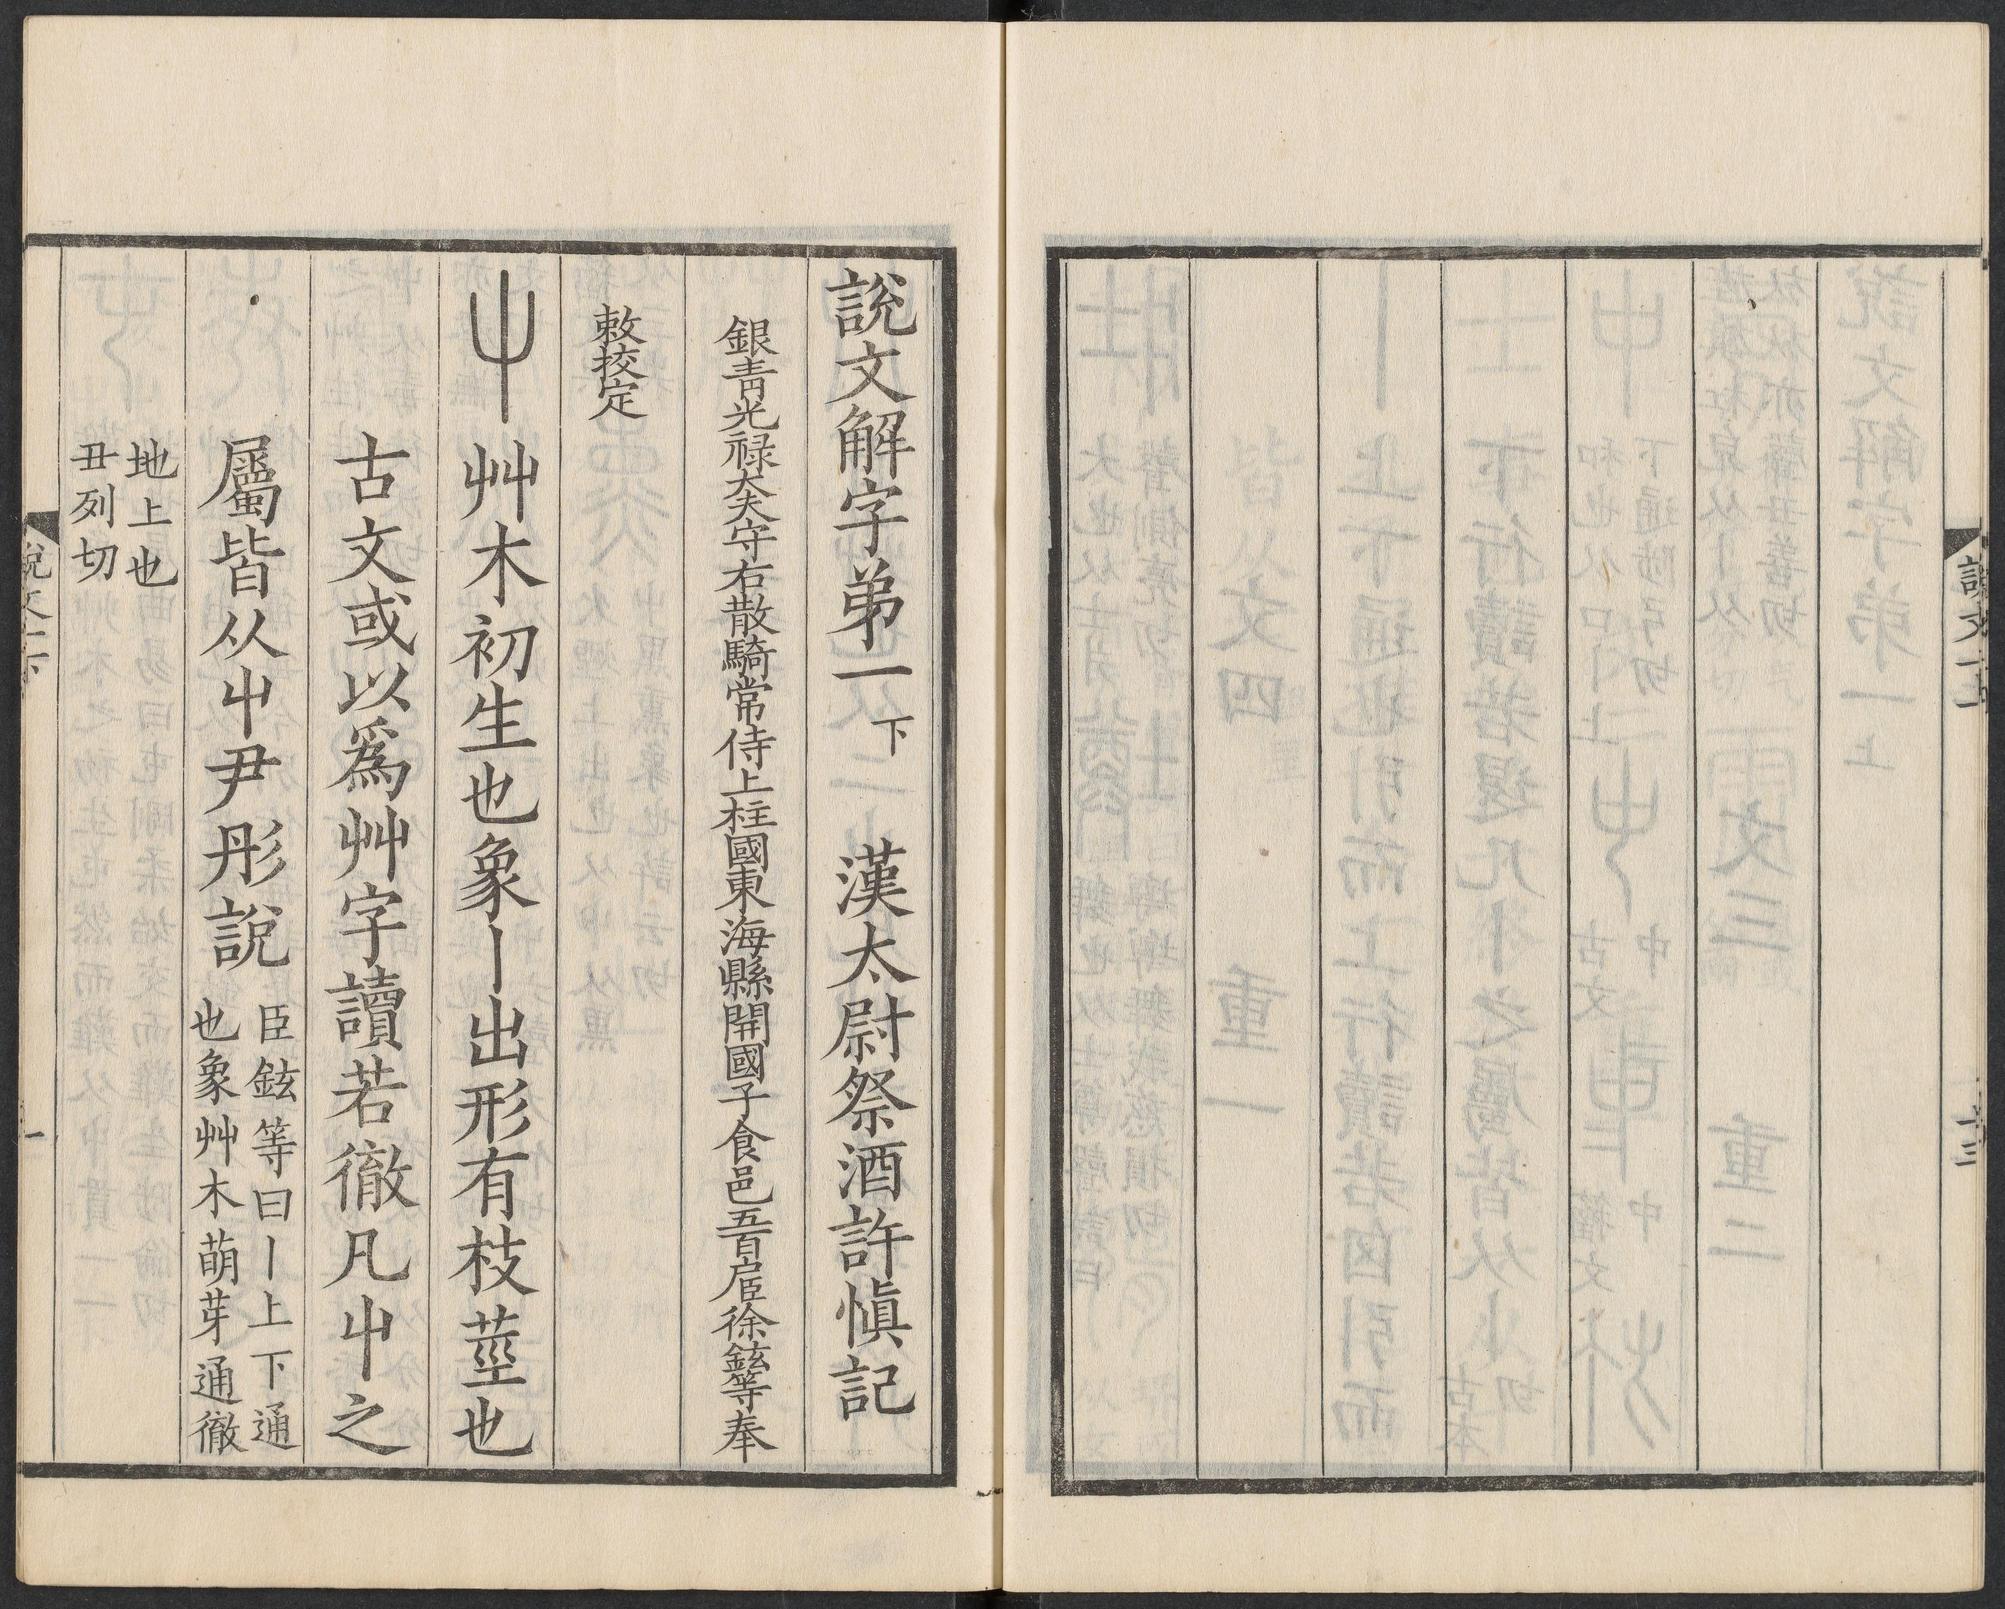 說文一上
十三
說文解字弟一下 漢太尉祭酒許愼記
銀青光禄大夫守右散騎常侍上柱國東海縣開國子食邑五百戶臣徐鉉等奉
敕挍定
屮 艸木初生也象丨出形有枝莖也
古文或以爲艸字讀若徹凡屮之
屬皆从屮尹彤說 臣鉉等曰丨上下通
也象艸木萌芽通徹
地上也
丑列切
說文一下
一